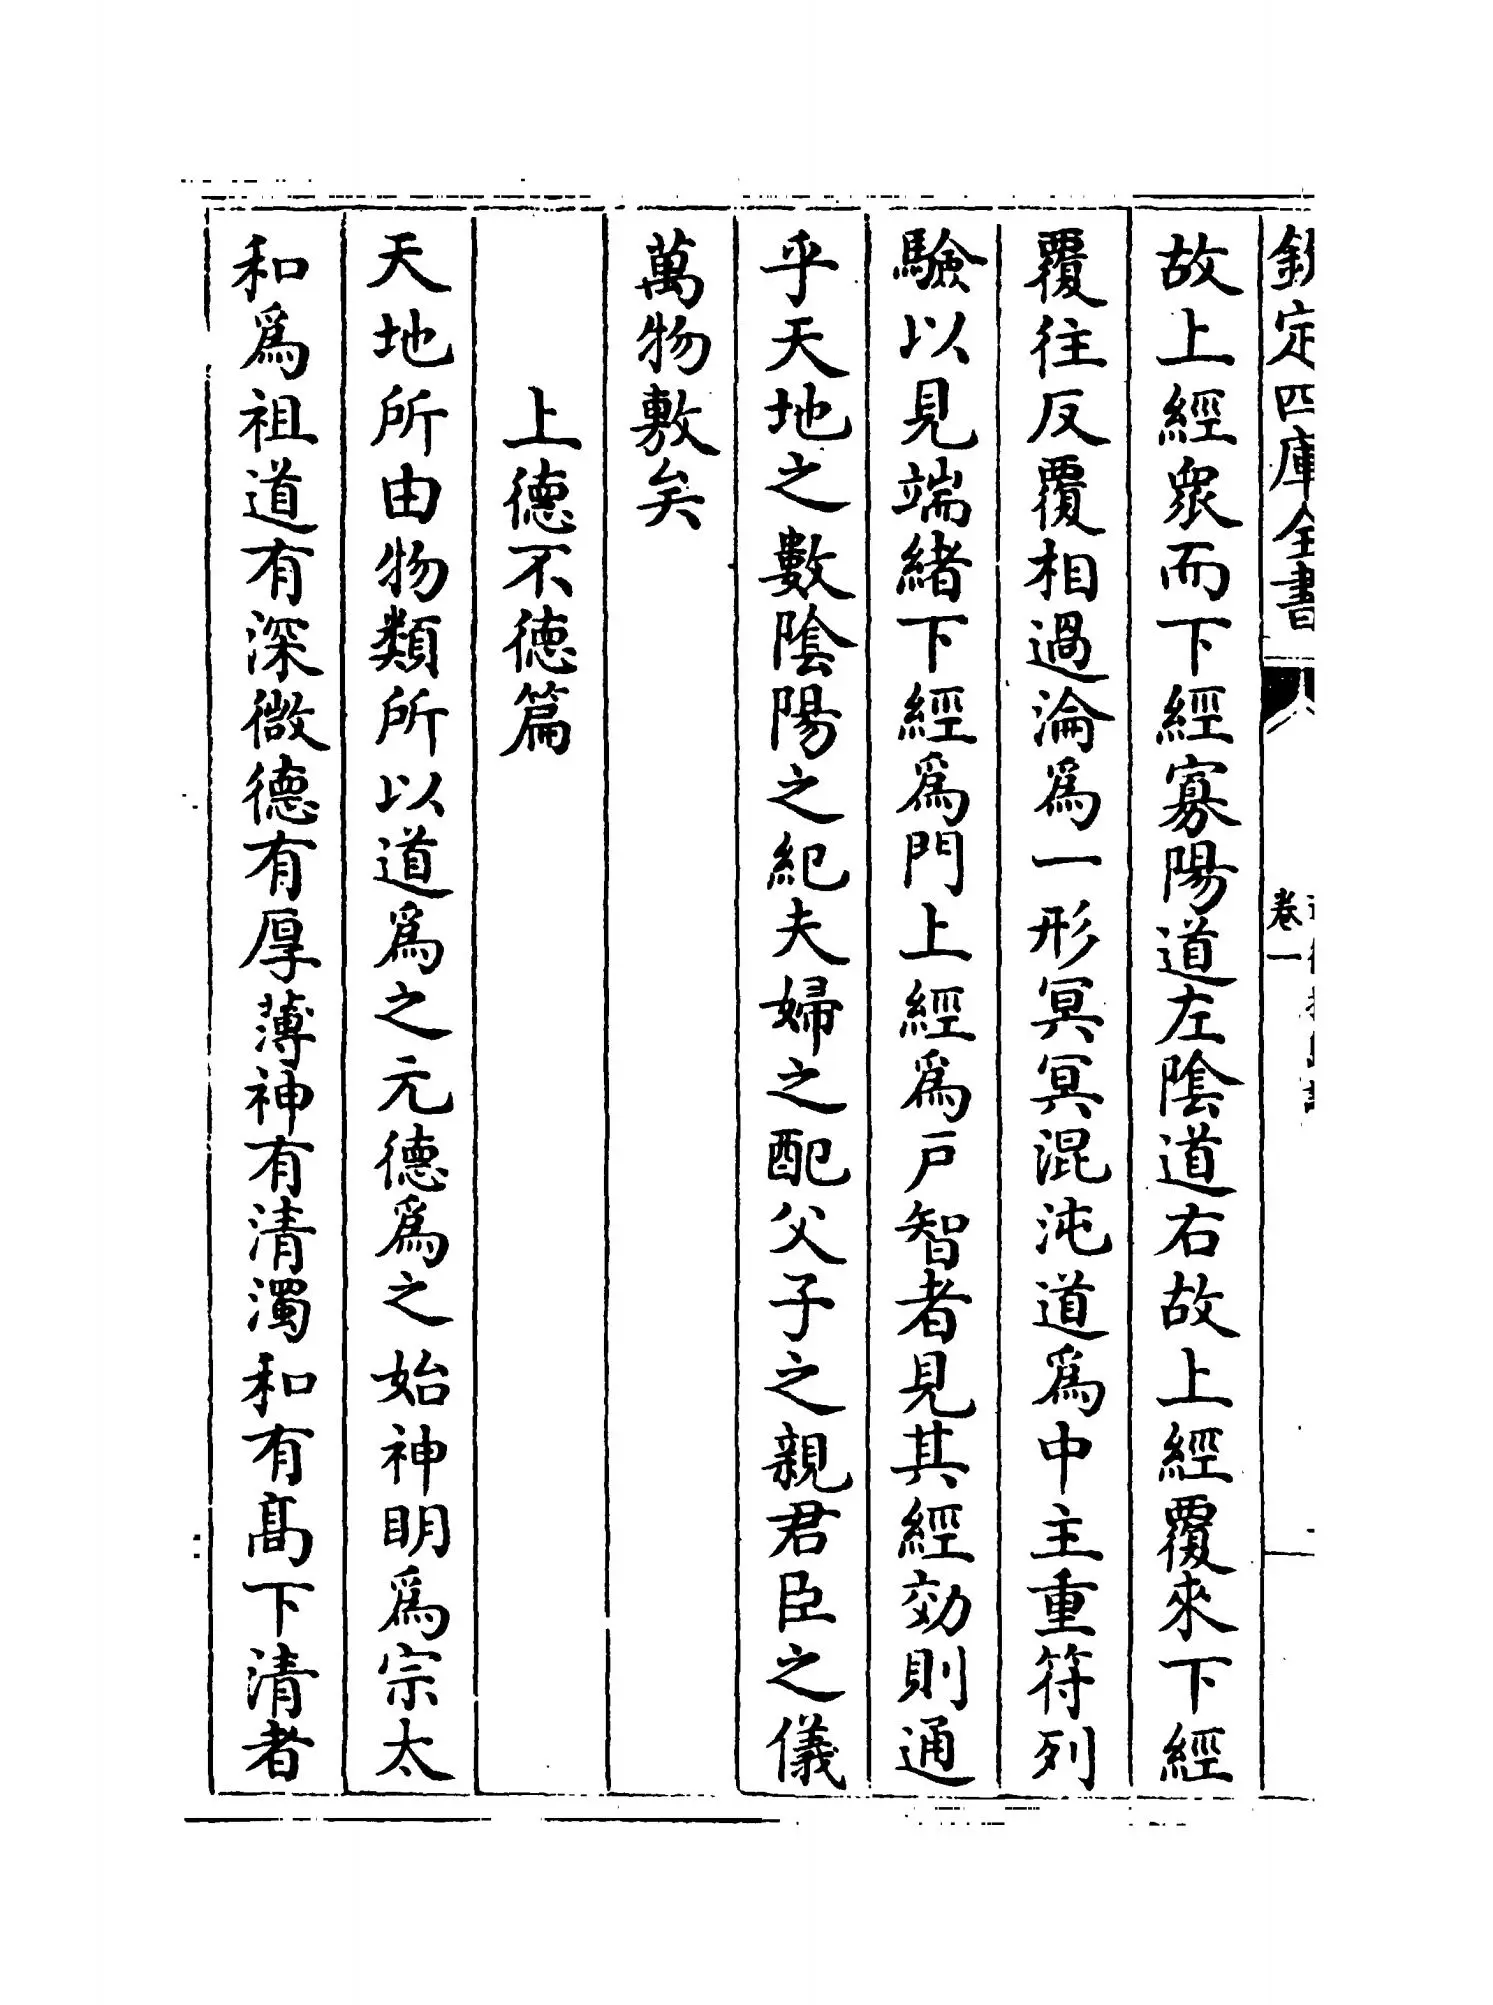 欽定四庫全書
卷一
故上經衆而下經寡陽道左陰道右故上經覆來下經
覆往反覆相過淪爲一形冥冥混沌道爲中主重符列
驗以見端緒下經爲門上經爲戶智者見其經効則通
乎天地之數陰陽之紀夫婦之配父子之親君臣之儀
萬物敷矣
上德不德篇
天地所由物類所以道爲之元德爲之始神明爲宗太
和爲祖道有深微德有厚薄神有清濁和有髙下清者